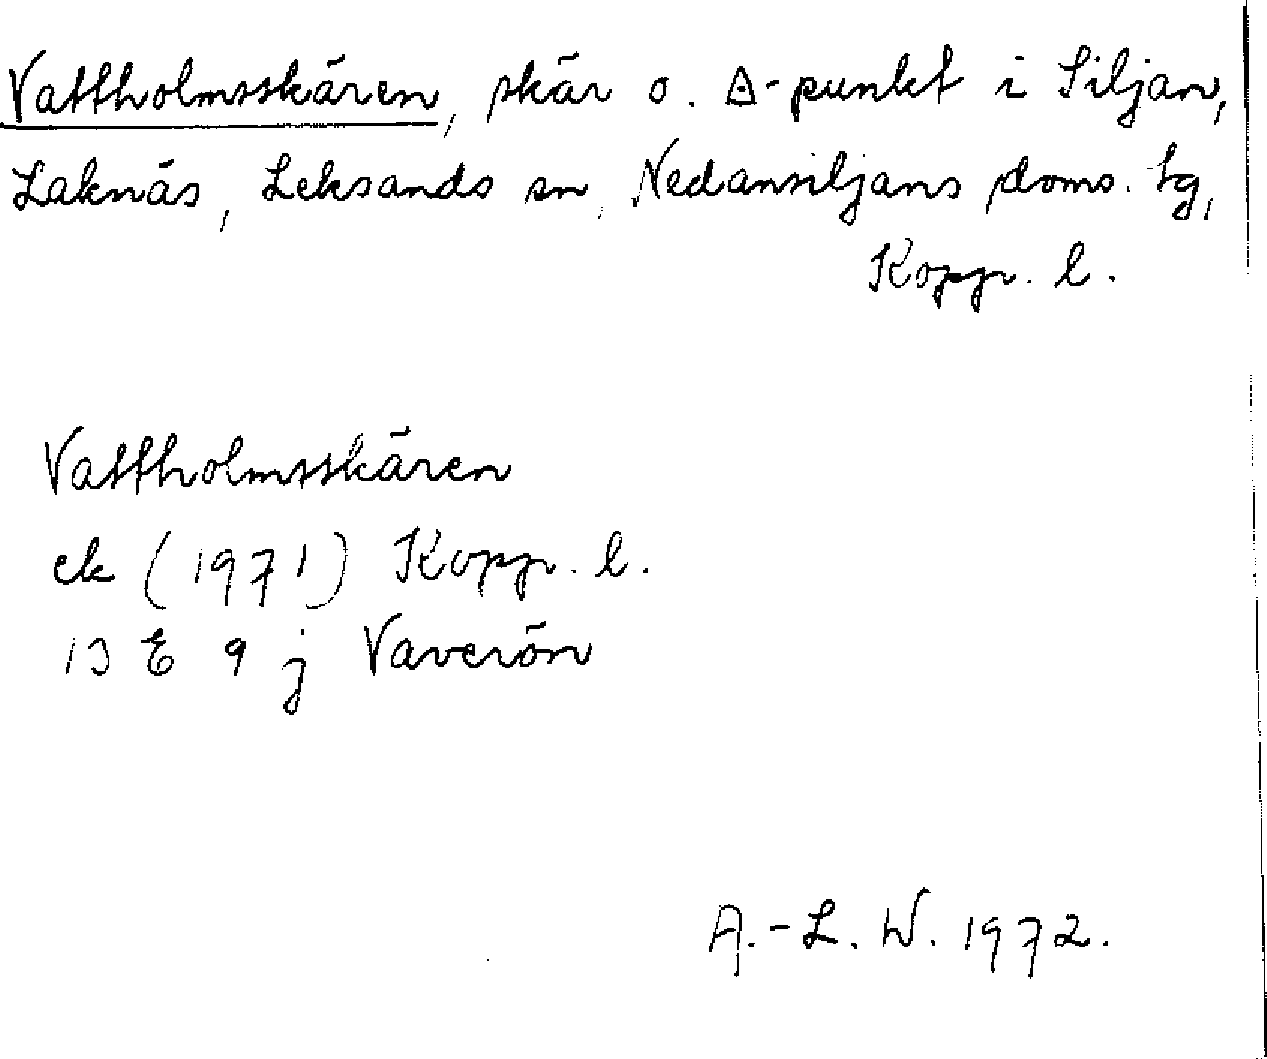 Vattholmsskären, skär o. △-punkt i Siljan,
Laknäs, Leksands sn, Nedansiljans doms. tg,
Kopp. l.
Vattholmsskären
ek (1971) Kopp. l.
13 E 9 j Vaverön
A.-L. W. 1972.